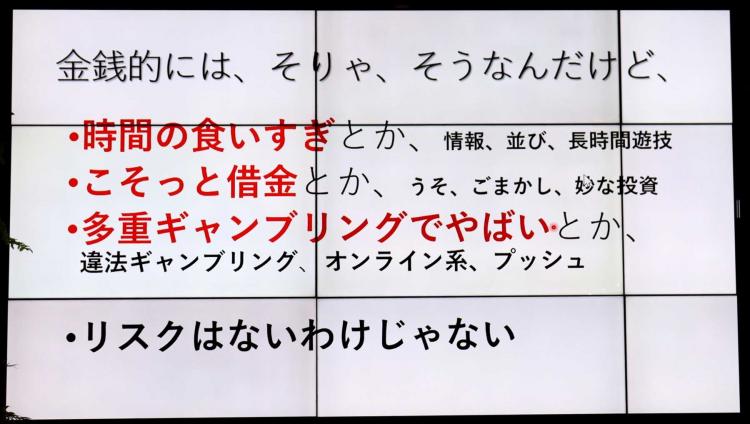 金銭的には、そりゃ、そうなんだけど、
•時間の食いすぎとか、情報、並び、長時間遊技
•こそっと借金とか、うそ、ごまかし、妙な投資
•多重ギャンブリングでやばいとか、
違法ギャンブリング、オンライン系、プッシュ
•リスクはないわけじゃない